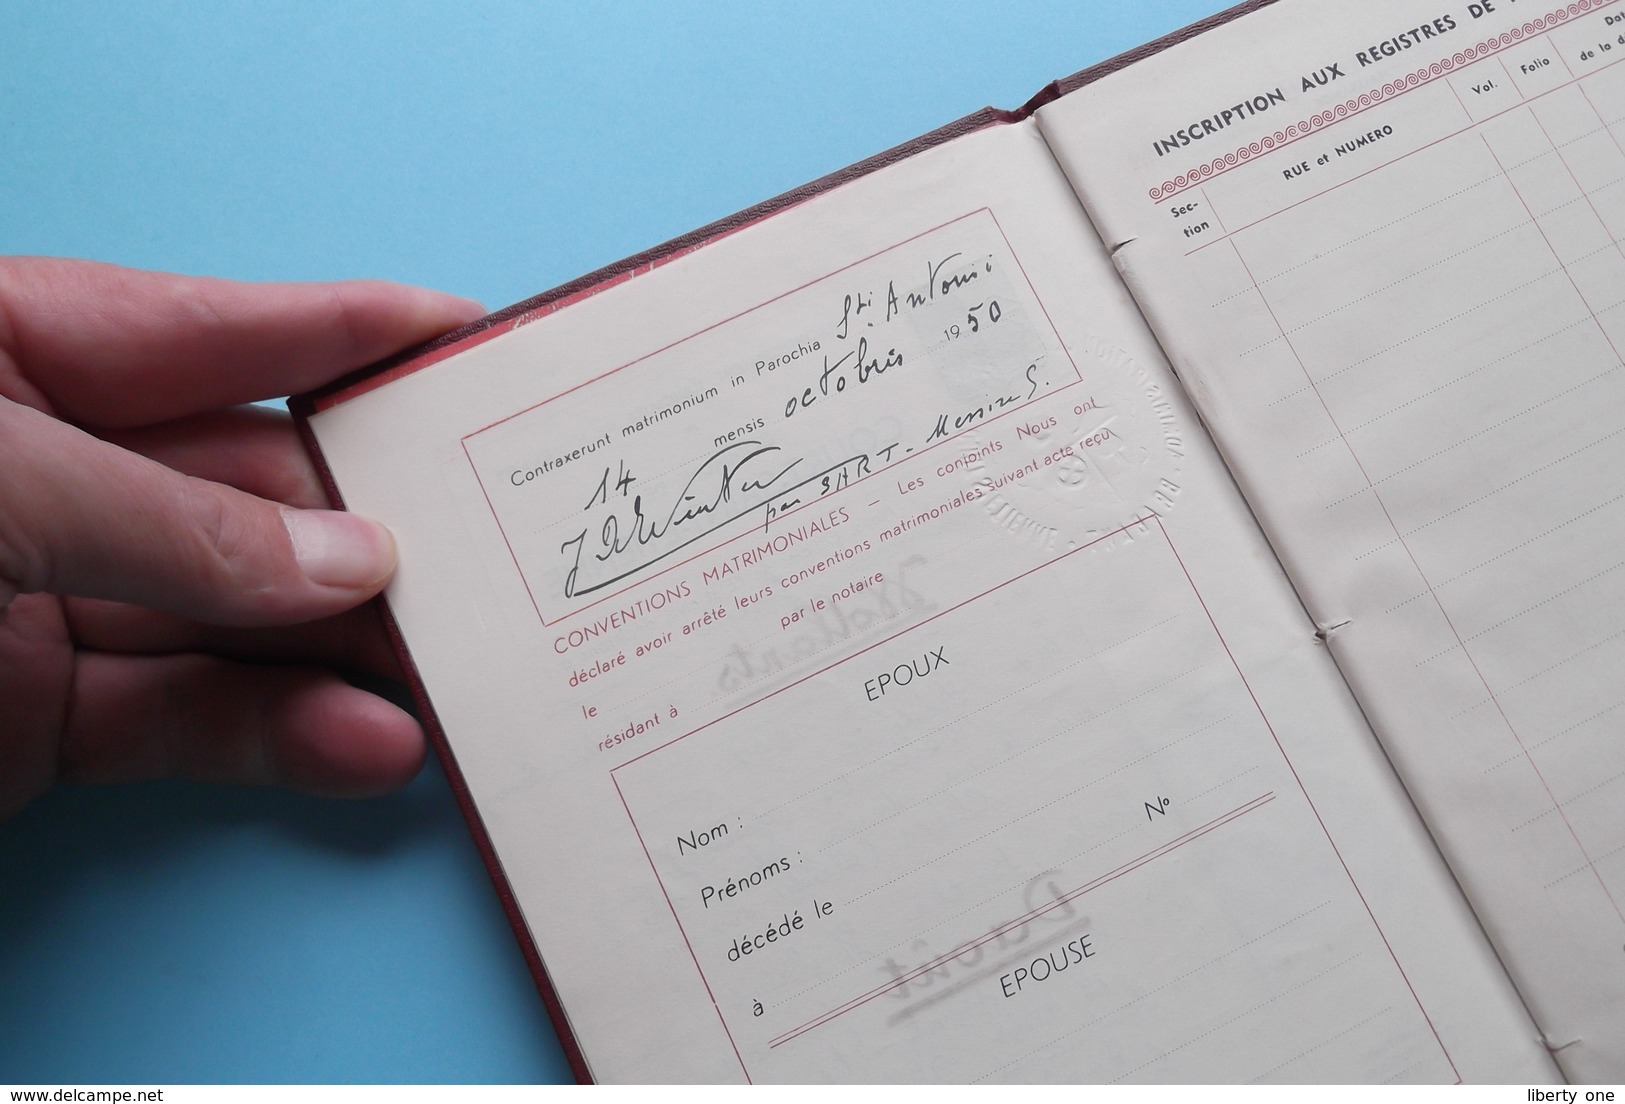 Contraxerunt matrimonium in Parochia Sti. Antoni
14 mensis octobris 1950
J De Winter
par SART-Messire G.
CONVENTIONS MATRIMONIALES — Les conjoints Nous ont
déclaré avoir arrêté leurs conventions matrimoniales suivant acte reçu
le par le notaire
résidant à
EPOUX
Nom :
Prénoms :
décédé le
à N°
EPOUSE
INSCRIPTION AUX REGISTRES DE
Sec-
tion
RUE et NUMERO
Vol.
Folio
de la
www.delcampe.net
liberty one